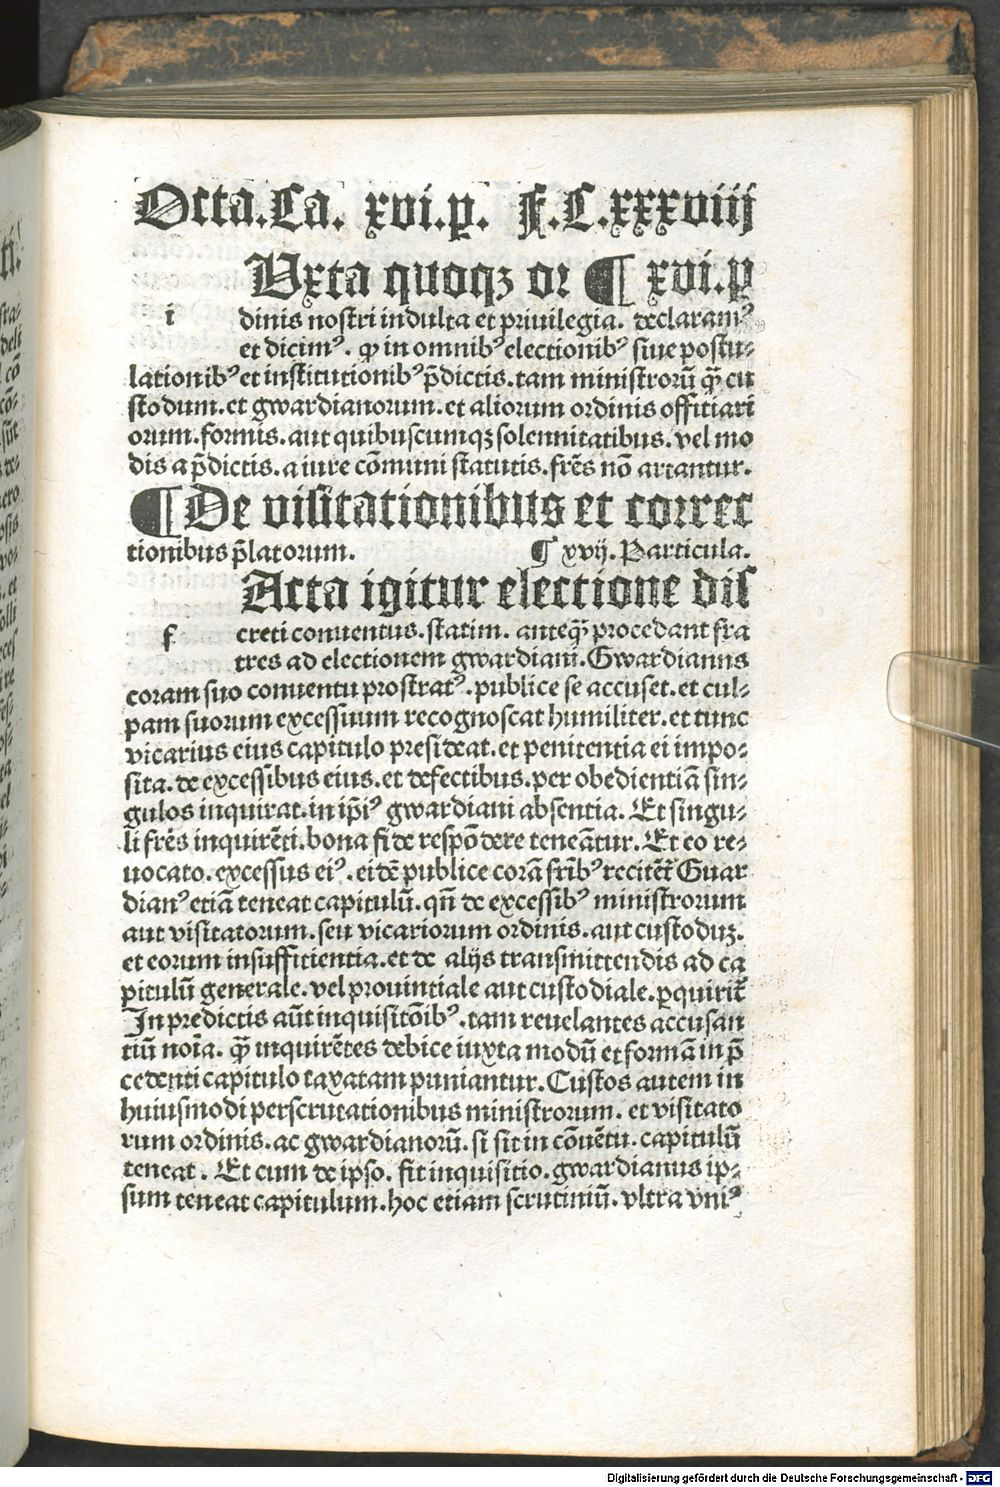 Octa.Ca. xvi.p. F.C.xxxviij
Uxta quoqꝫ or ¶ xvi.p
i dinis nostri indulta et priuilegia. declaramꝰ
et dicimꝰ. ꝙ in omnibꝰ electionibꝰ siue postu-
lationibꝰ et institutionibꝰ p̄dictis. tam ministrorū ꝙ̄ cu
stodum. et gwardianorum. et aliorum ordinis offitiari
orum. formis. aut quibuscumqꝫ solennitatibus. vel mo
dis a p̄dictis. a iure cōmuni statutis. frēs nō artantur.
¶ De visitationibus et correc
tionibus p̄latorum. ¶ xvij. Particula.
Acta igitur electione dis
f creti conuentus. statim. anteꝙ̄ procedant fra
tres ad electionem gwardiani. Gwardianus
coram suo conuentu prostratꝰ. publice se accuset. et cul-
pam suorum excessuum recognoscat humiliter. et tunc
vicarius eius capitulo presideat. et penitentia ei impo-
sita. de excessibus eius. et defectibus. per obedientiā sin-
gulos inquirat. in ip̄iꝰ gwardiani absentia. Et singu-
li frēs inquirēti. bona fide respōdere teneātur. Et eo re-
uocato. excessus eiꝰ. eidē publice corā frībꝰ recitēt᷑ Guar
dianꝰ etiā teneat capitulū. qn̄ de excessibꝰ ministrorum
aut visitatorum. seu vicariorum ordinis. aut custoduꝫ.
et eorum insuffitientia. et de alijs transmittendis ad ca
pitulū generale. vel prouintiale aut custodiale. ꝑquirit᷑
In predictis aūt inquisitōibꝰ. tam reuelantes accusan
tiū noīa. ꝙ̄ inquirētes debite iuxta modū et formā in p̄
cedenti capitulo taxatam puniantur. Custos autem in
huiusmodi perscrutationibus ministrorum. et visitato
rum ordinis. ac gwardianorū. si sit in cōuētu. capitulū
teneat. Et cum de ipso. fit inquisitio. gwardianus ip-
sum teneat capitulum. hoc etiam scrutiniū. vltra vniꝰ
Digitalisierung gefördert durch die Deutsche Forschungsgemeinschaft - DFG